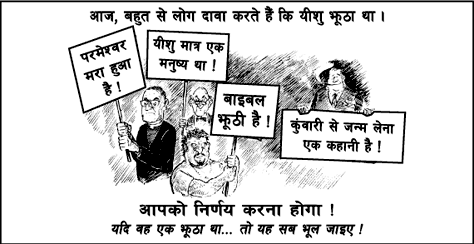 आज, बहुत से लोग दावा करते हैं कि यीशु झूठा था ।
परमेश्वर
मरा हुआ
है !
यीशु मात्र एक
मनुष्य था !
बाइबल
झूठी है !
कुंवारी से जन्म लेना
एक कहानी है !
आपको निर्णय करना होगा !
यदि वह एक झूठा था... तो यह सब भूल जाइए !